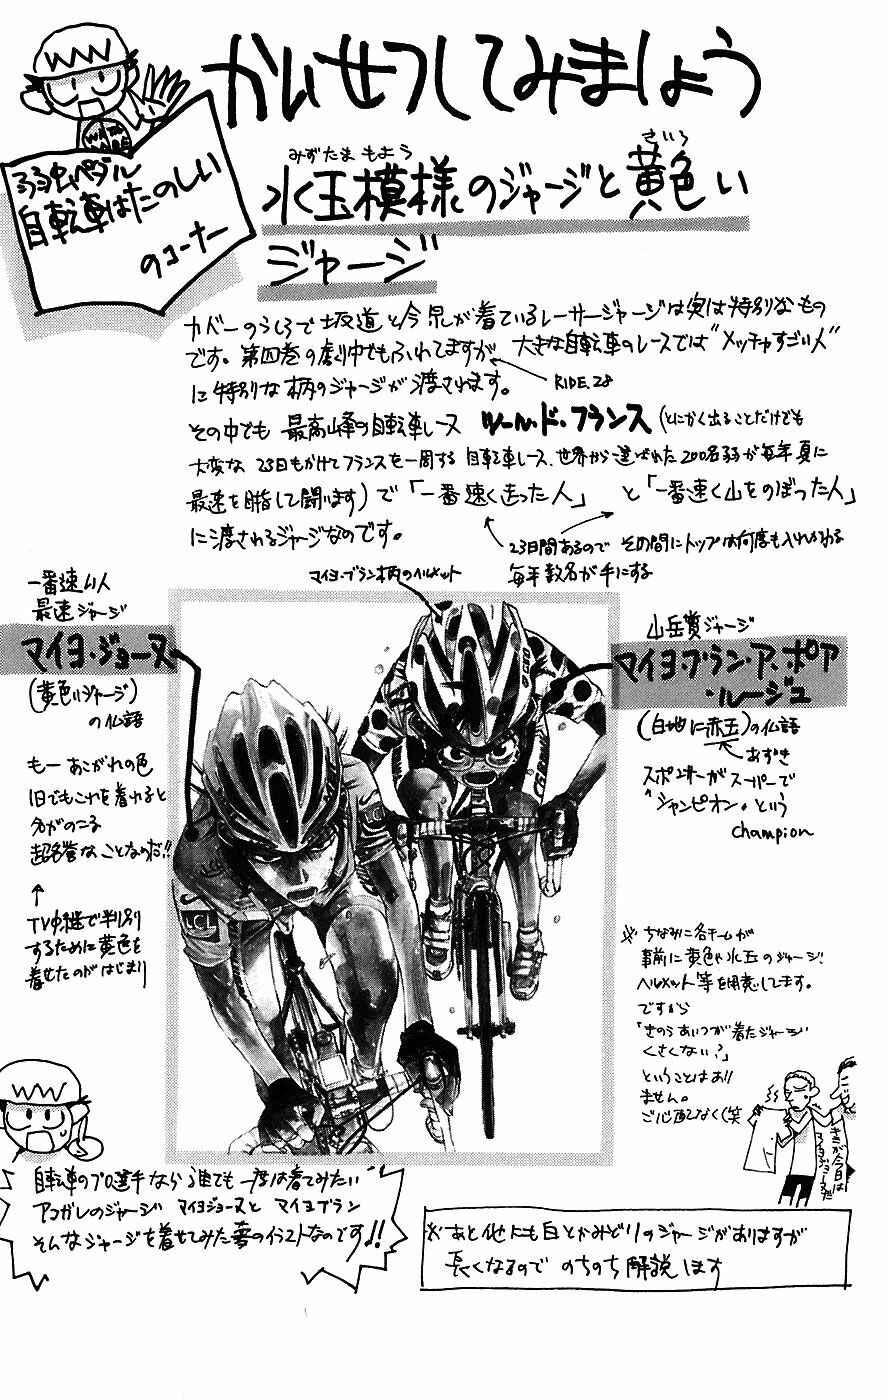 かいせつしてみましょう
WATA
NABE
弱虫ペダル
自転車はたのしい
のコーナー
みずたま もよう
きいろ
水玉模様のジャージと黄色い
ジャージ
カバーのうしろで坂道と今泉が着ているレーサージャージは実は特別なもの
です。第四巻の劇中でもふれてますが 大きな自転車のレースでは"メッチャすごい人"
に特別な柄のジャージが渡されます。
RIDE.28
その中でも 最高峰の自転車レース ツール・ド・フランス (とにかく出ることだけでも
大変な 23日もかけてフランスを一周する 自転車レース、世界から選ばれた200名弱が毎年夏に
最速を目指して闘います) で 「一番速く走った人」 と「一番速く山をのぼった人」
に渡されるジャージなのです。
23日間あるので その間にトップは何度も入れかわる
毎年数名が手にする
マイヨ・ブラン柄のヘルメット
一番速い人
最速ジャージ
マイヨ・ジョーヌ
(黄色いジャージ)
の仏語
もー あこがれの色
1日でもこれを着れると
名がのこる
超名誉なことなのだ!!
TV中継で判別
するために黄色を
着せたのがはじまり
山岳賞ジャージ
マイヨ・ブラン・ア・ポア
・ルージュ
(白地に赤玉)の仏語
あずき
スポンサーがスーパーで
"シャンピオン"という
champion
LCL
※ ちなみに各チームが
事前に黄色や水玉のジャージ、
ヘルメット等を用意してます。
ですから
「きのうあいつが着たジャージ
くさくない?」
ということはあり
ません。
ご心配なく(笑
キミが今日は
マイヨジョーヌだ
自転車のプロ選手なら誰でも一度は着てみたい
アコガレのジャージ マイヨジョーヌと マイヨブラン
そんなジャージを着せてみた夢のイラストなのです!!
※あと他にも白とかみどりのジャージがありますが
長くなるので のちのち解説します